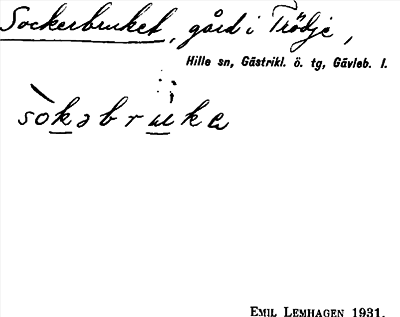 Sockerbruket, gård i Trödje,
Hille sn, Gästrikl. ö. tg, Gävleb. l.
sòkəbrukə
EMIL LEMHAGEN 1931.